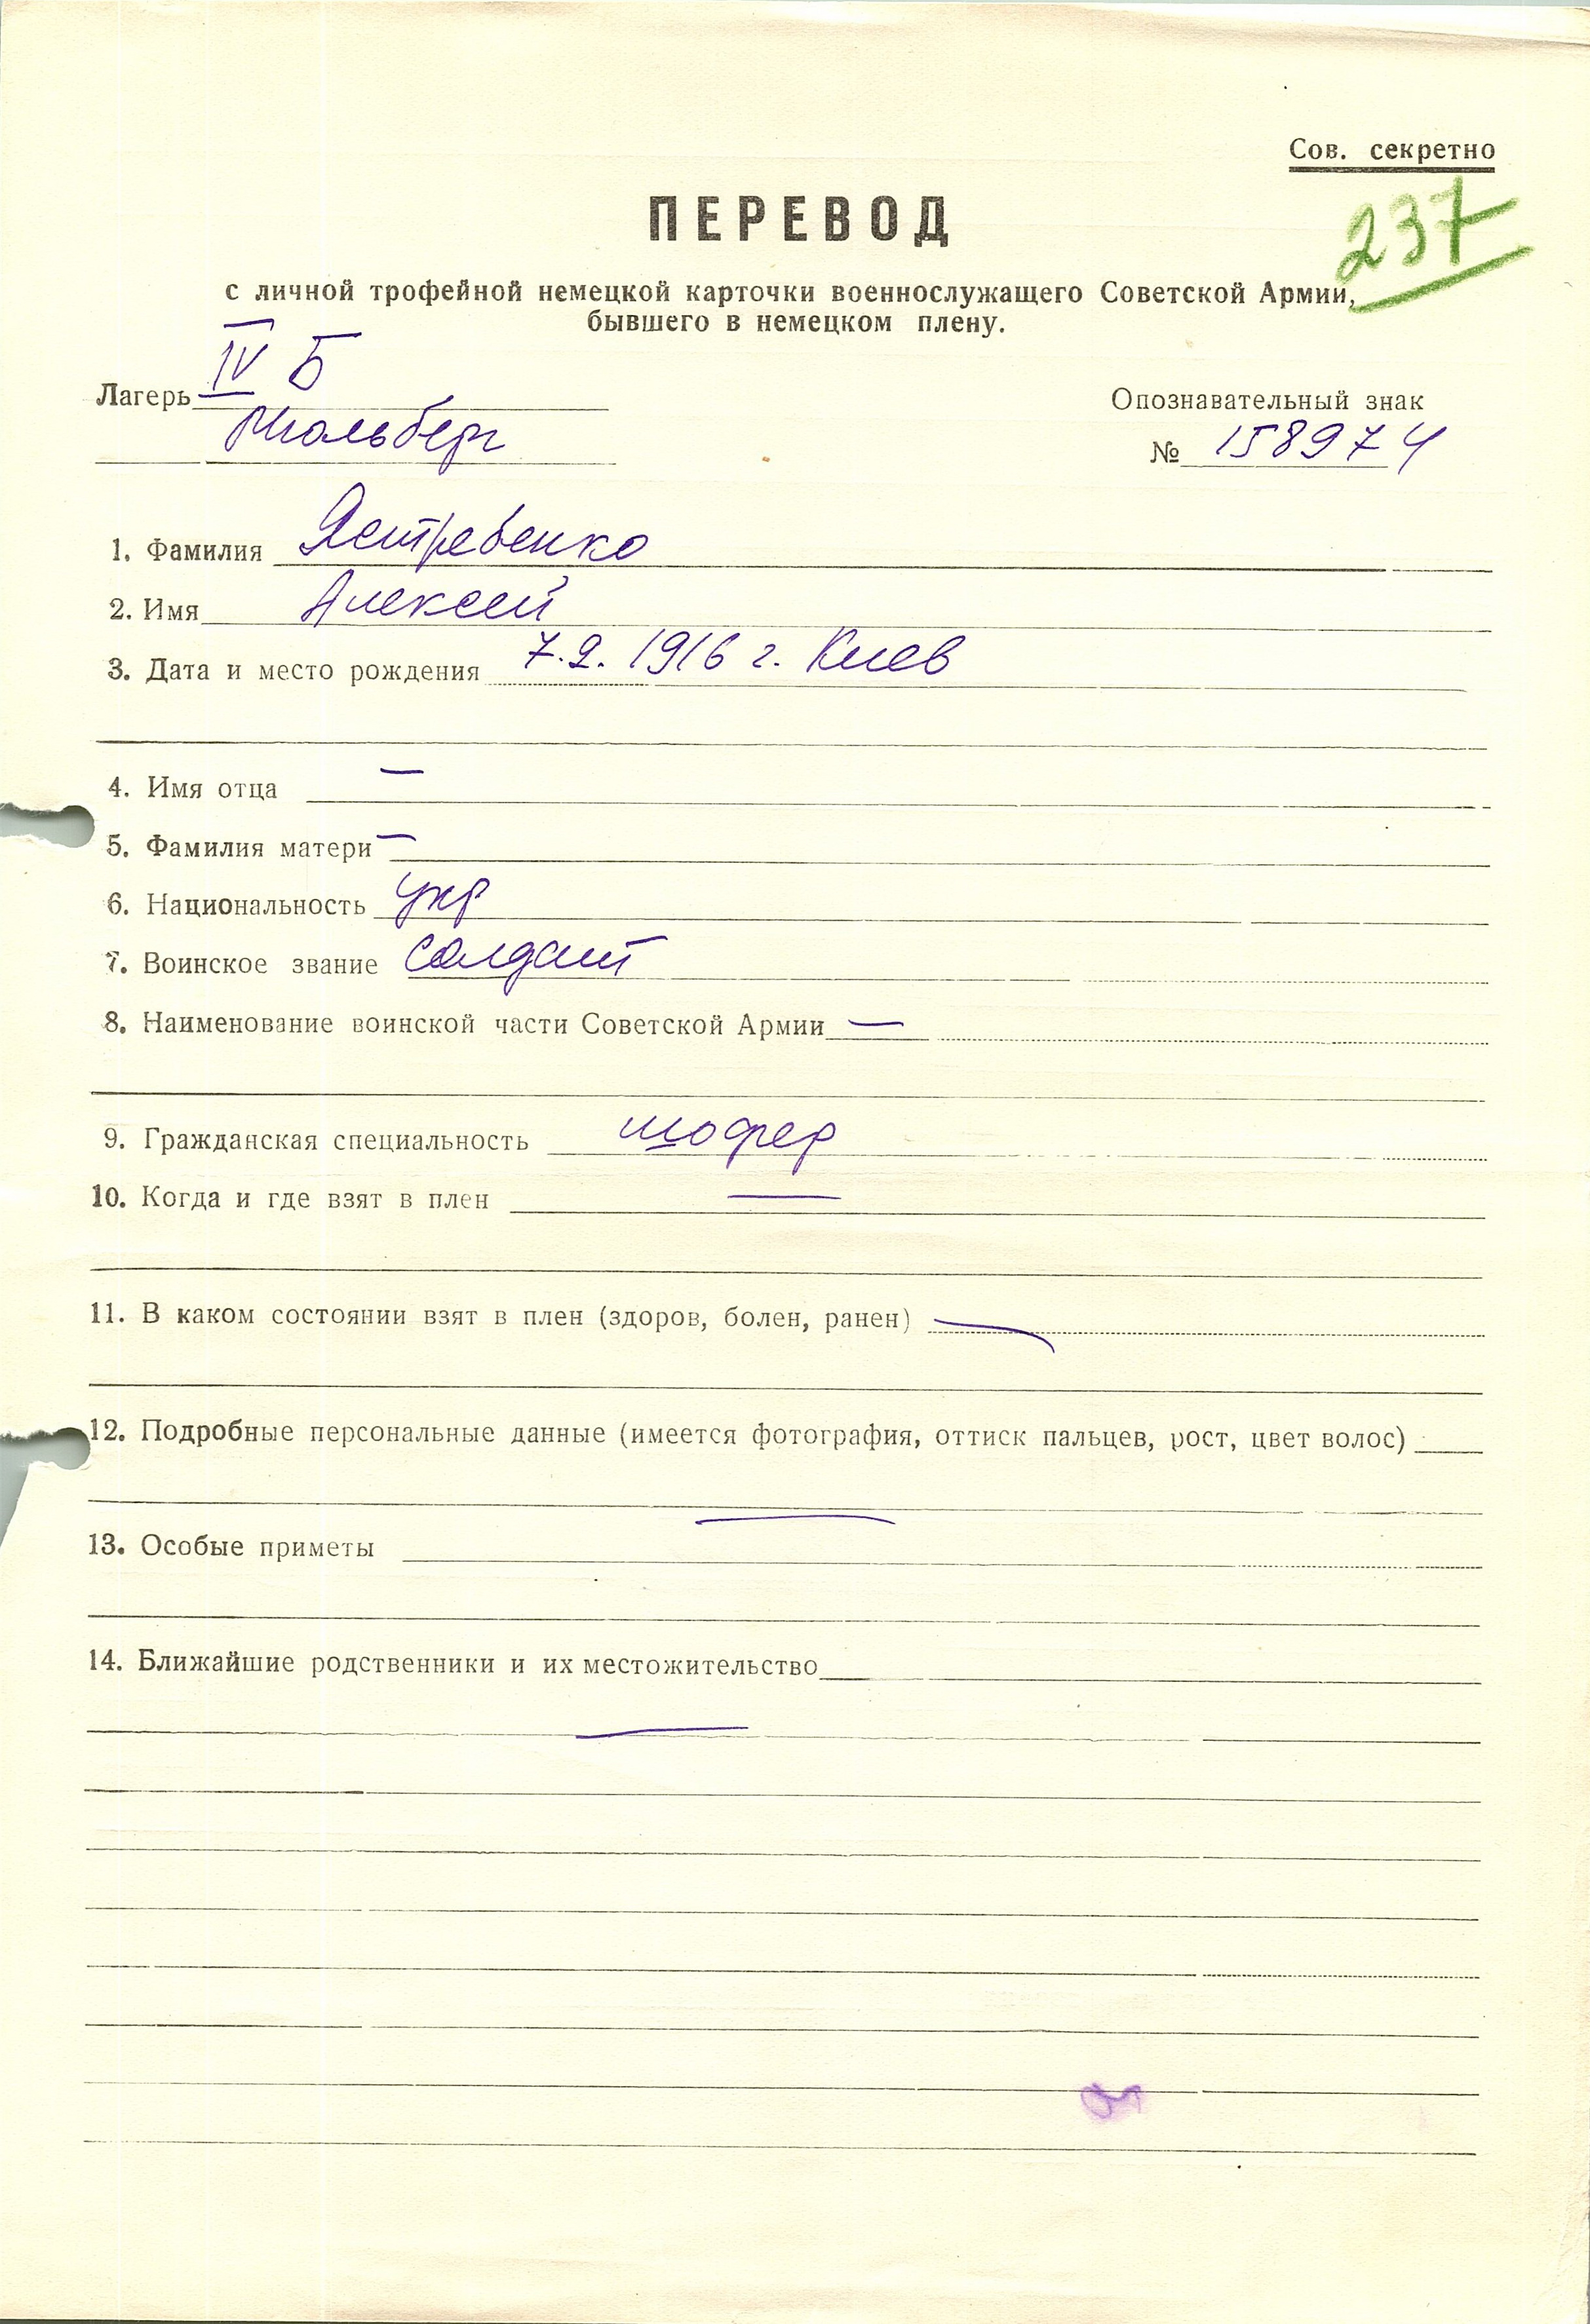 Сов. секретно
237
ПЕРЕВОД
с личной трофейной немецкой карточки военнослужащего Советской Армии,
бывшего в немецком плену.
Лагерь IV Б
Мюльберг
Опознавательный знак
№ 158974
1. Фамилия Ястребенко
2. Имя Алексей
3. Дата и место рождения 7.2.1916 г. Киев
4. Имя отца —
5. Фамилия матери —
6. Национальность укр
7. Воинское звание солдат
8. Наименование воинской части Советской Армии —
9. Гражданская специальность шофер
10. Когда и где взят в плен —
11. В каком состоянии взят в плен (здоров, болен, ранен) —
12. Подробные персональные данные (имеется фотография, оттиск пальцев, рост, цвет волос)
—
13. Особые приметы
14. Ближайшие родственники и их местожительство
—